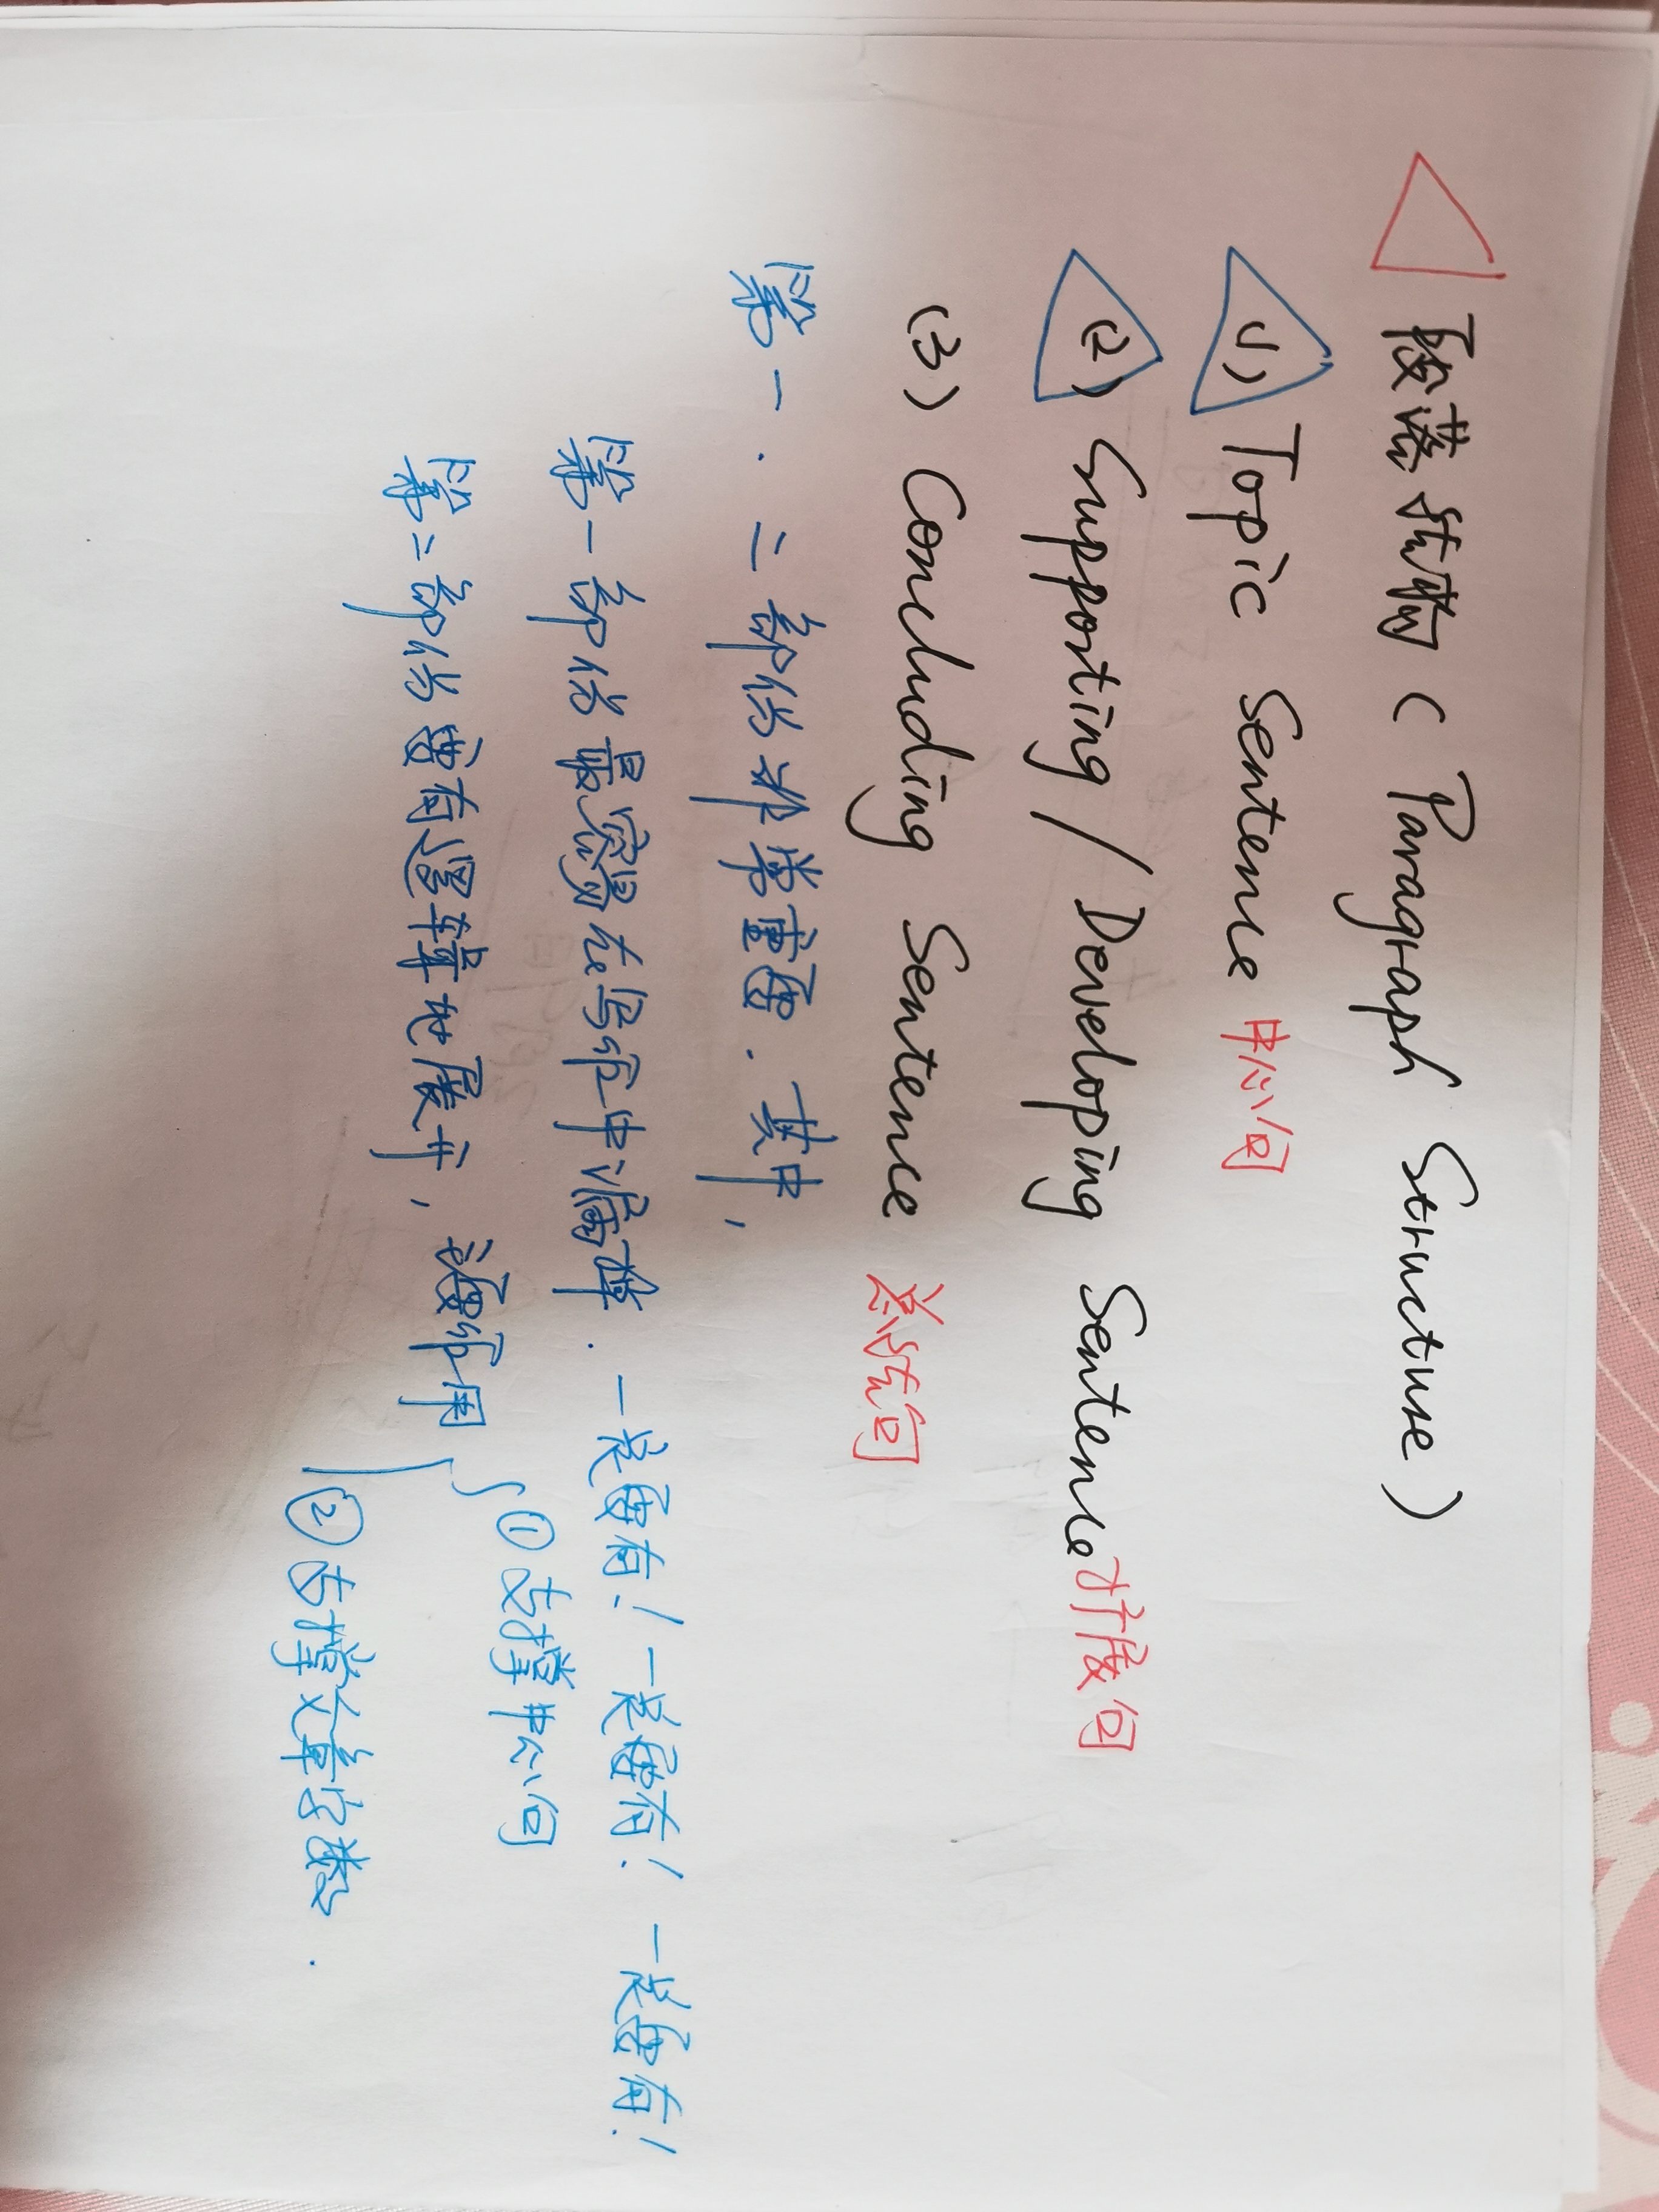 段落结构 ( Paragraph Structure )
(1) Topic Sentence 中心句
(2) Supporting / Developing Sentence 扩展句
(3) Concluding Sentence 总结句
第一. 二部份非常重要. 其中,
第一部份最容易在写作中漏掉. 一定要有! 一定要有! 一定要有!
第二部份要有逻辑地展开, 该作用
① 支撑中心句
② 支撑文章字数.